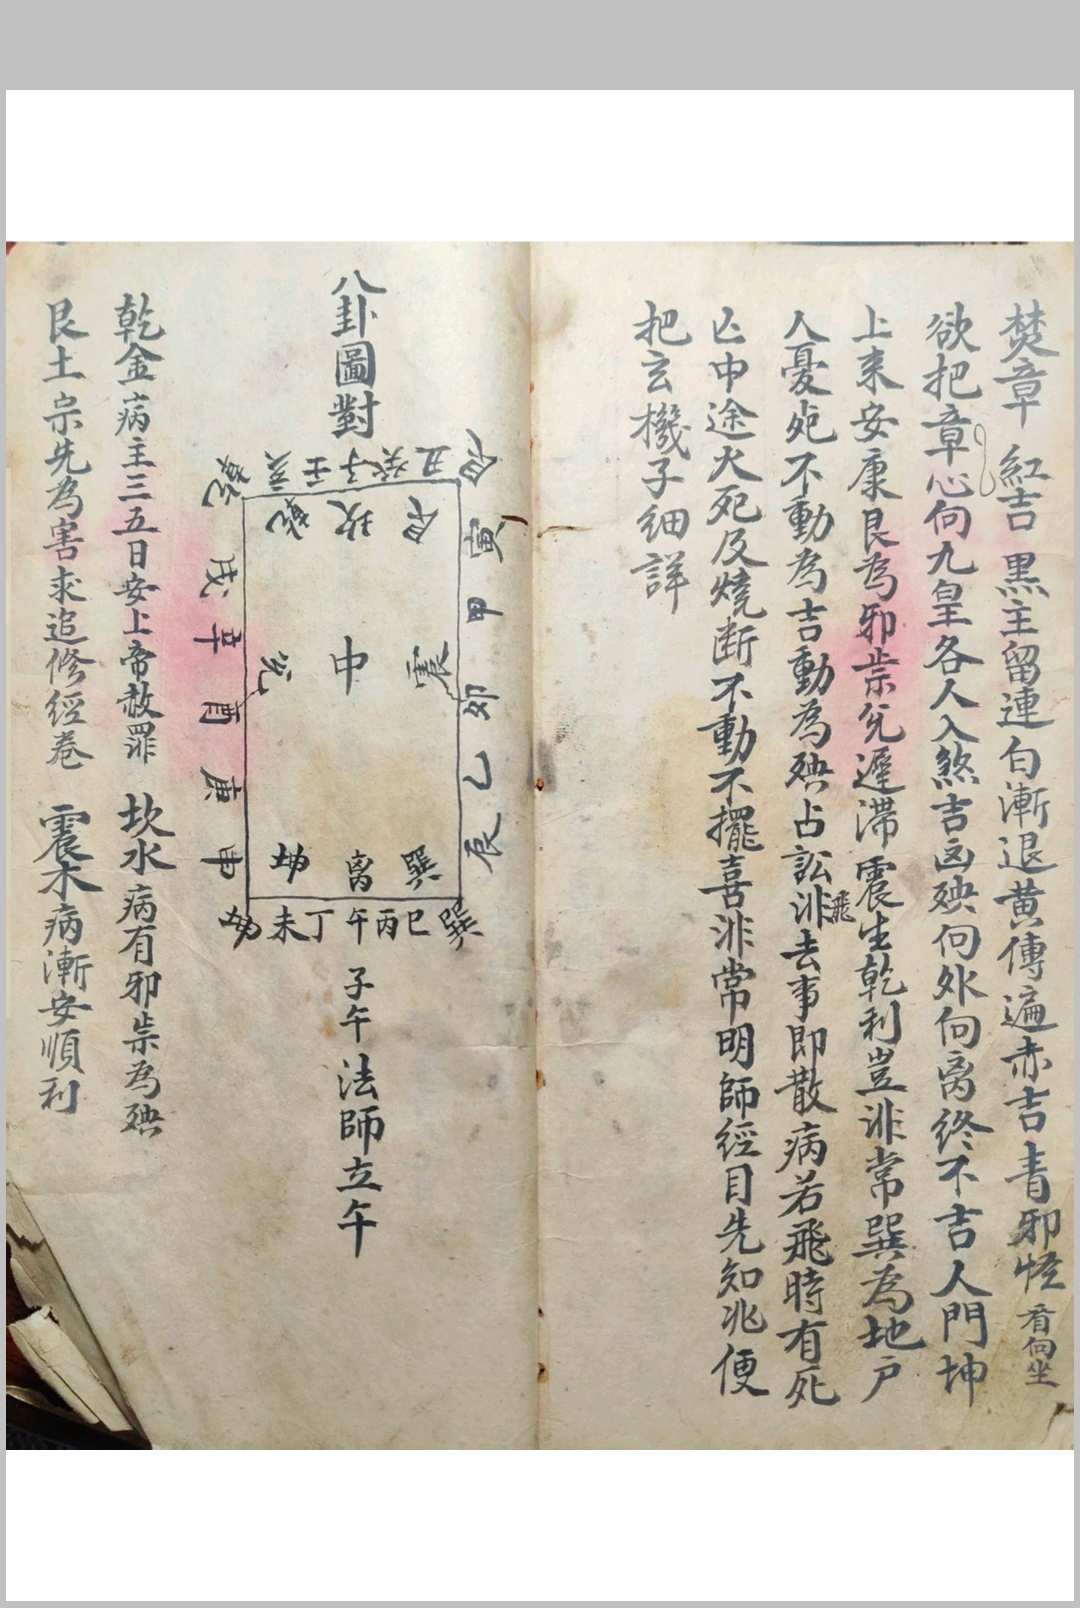 焚章 紅吉 黑主留連白漸退黄傳遍赤吉青邪怪看向坐
欲把章心向九皇各人入煞吉凶殃向外向离終不吉人門坤
上来安康艮為邪祟兌遲滞震生乾利豈非常巽為地戶
人憂死不動為吉動為殃占訟非飛去事即散病若飛時有死
亡中途火死及燒断不動不擺喜非常明師經目先知兆便
把玄機子细詳
八卦圖對
乾 亥壬子癸丑 艮
乾 坎 艮
寅甲卯乙辰
戌辛酉庚申
兌 中 震
坤 离 巽
坤 未丁午丙巳 巽
子午法師立午
乾金病主三五日安上帝赦罪 坎水病有邪祟為殃
艮土宗先為害求追修經卷 震木病漸安順利